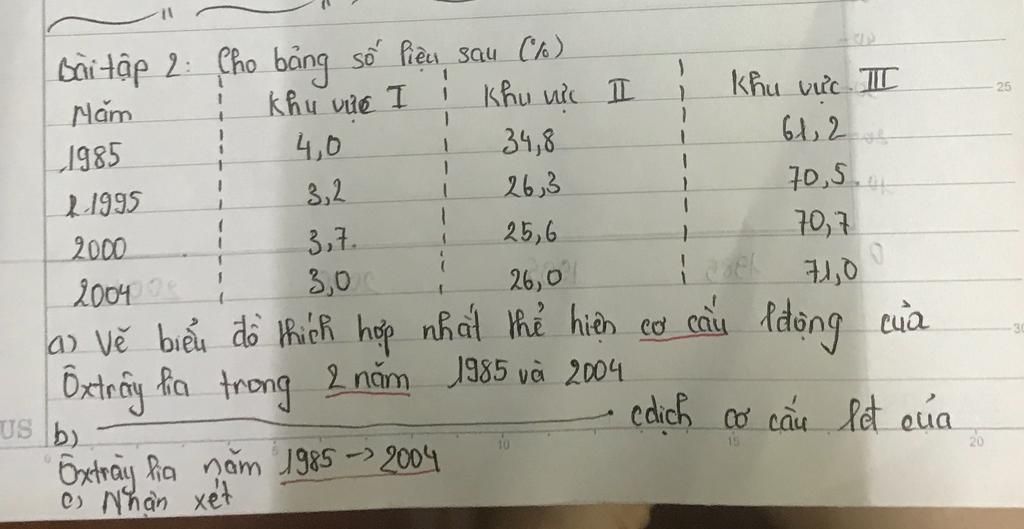 Bài tập 2: Cho bảng số liệu sau (%)
Năm Khu vực I Khu vực II Khu vực III
1985 4,0 34,8 61,2
1995 3,2 26,3 70,5
2000 3,7 25,6 70,7
2004 3,0 26,0 71,0
a) Vẽ biểu đồ thích hợp nhất thể hiện cơ cấu lđộng của
Ôxtrâylia trong 2 năm 1985 và 2004
b) cdịch cơ cấu lđ của
Ôxtrâylia năm 1985 -> 2004
c) Nhận xét
US 10 15 20
25
30